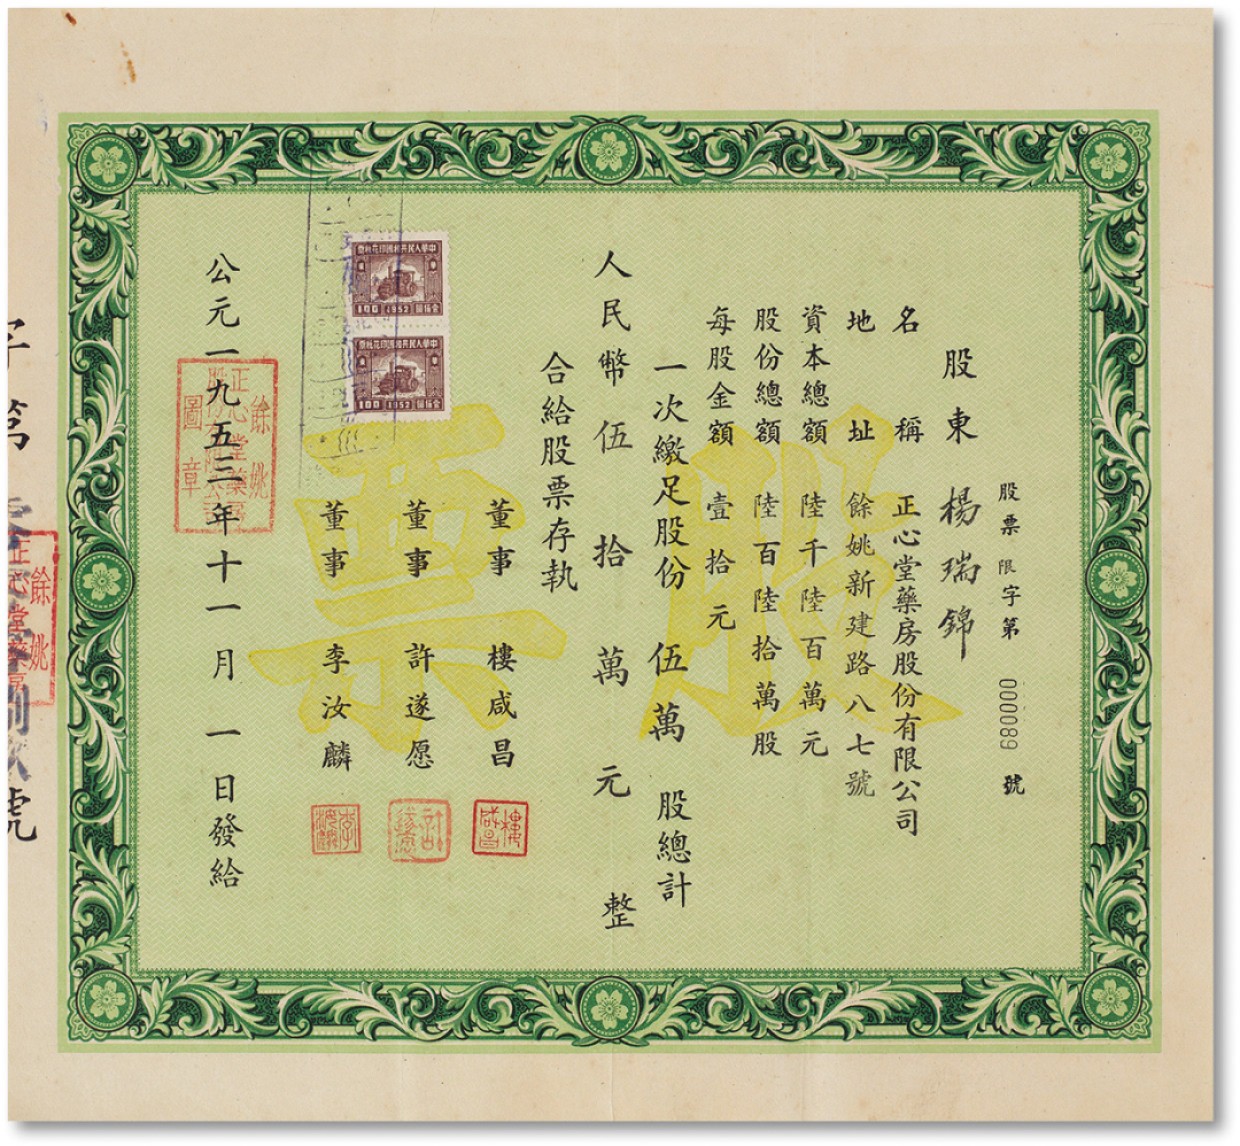 股票限字第 000089 號
股東 楊瑞錦
名稱 正心堂藥房股份有限公司
地址 餘姚新建路八七號
資本總額 陸千陸百萬元
股份總額 陸百陸拾萬股
每股金額 壹拾元
一次繳足股份 伍萬 股總計
人民幣伍拾萬元整
合給股票存執
董事 樓咸昌
董事 許遂愿
董事 李汝麟
公元一九五三年十一月一日發給
股票
中華人民共和國印花稅票
100 1952
中華人民共和國印花稅票
100 1952
餘姚
正心堂藥房
股份有限公司
圖章
樓咸昌
許遂愿
李汝麟
字第
號
餘姚
正心堂藥房